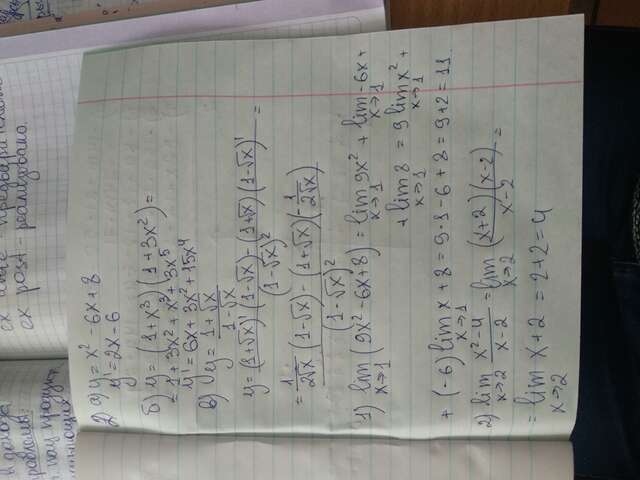 2) а) y = x² - 6x + 8
y' = 2x - 6
б) y = (1 + x³)(1 + 3x²) =
= 1 + 3x² + x³ + 3x⁵
y' = 6x + 3x² + 15x⁴
в) y = (1 + √x)/(1 - √x)
y = ((1 + √x)'(1 - √x) - (1 + √x)(1 - √x)')/(1 - √x)² =
= (1/(2√x) (1 - √x) - (1 + √x)(-1/(2√x)))/(1 - √x)²
1) lim x→1 (9x² - 6x + 8) = lim x→1 9x² + lim x→1 -6x +
+ lim x→1 8 = 9 lim x→1 x² +
+ (-6) lim x→1 x + 8 = 9·1 - 6 + 8 = 9 + 2 = 11
2) lim x→2 (x² - 4)/(x - 2) = lim x→2 ((x + 2)(x - 2))/(x - 2) =
= lim x→2 x + 2 = 2 + 2 = 4
ex post - реализовано.